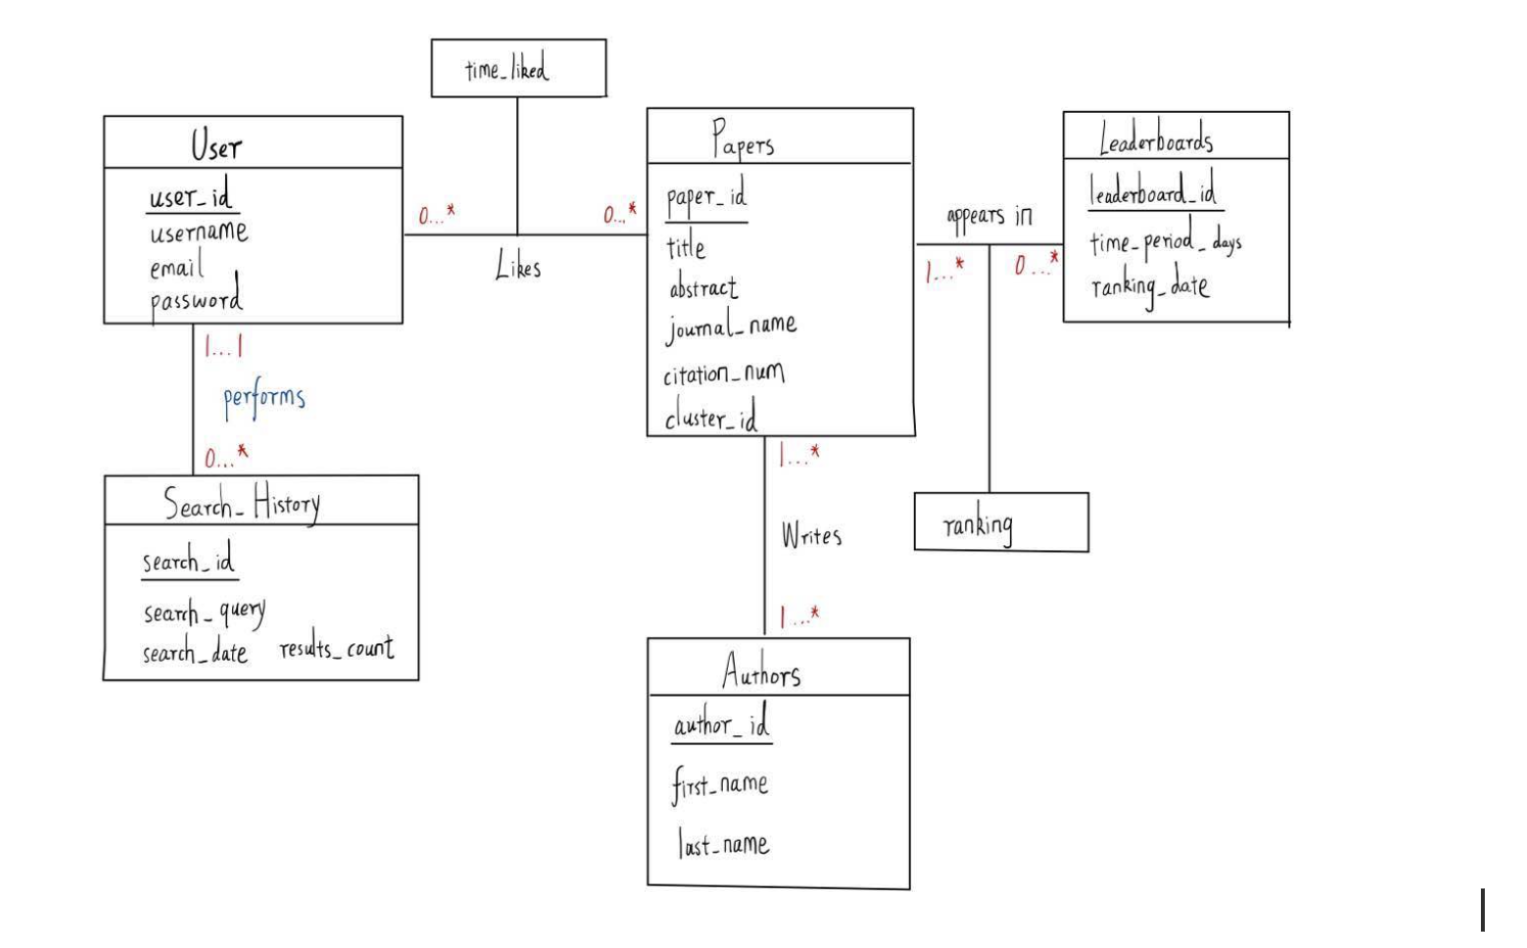 time_liked
User
user_id
username
email
password
0...*
0...*
Likes
Papers
paper_id
title
abstract
journal_name
citation_num
cluster_id
appears in
1...*
0...*
Leaderboards
leaderboard_id
time_period_days
ranking_date
1...1
performs
0...*
Search_History
search_id
search_query
search_date results_count
1...*
Writes
1...*
ranking
Authors
author_id
first_name
last_name